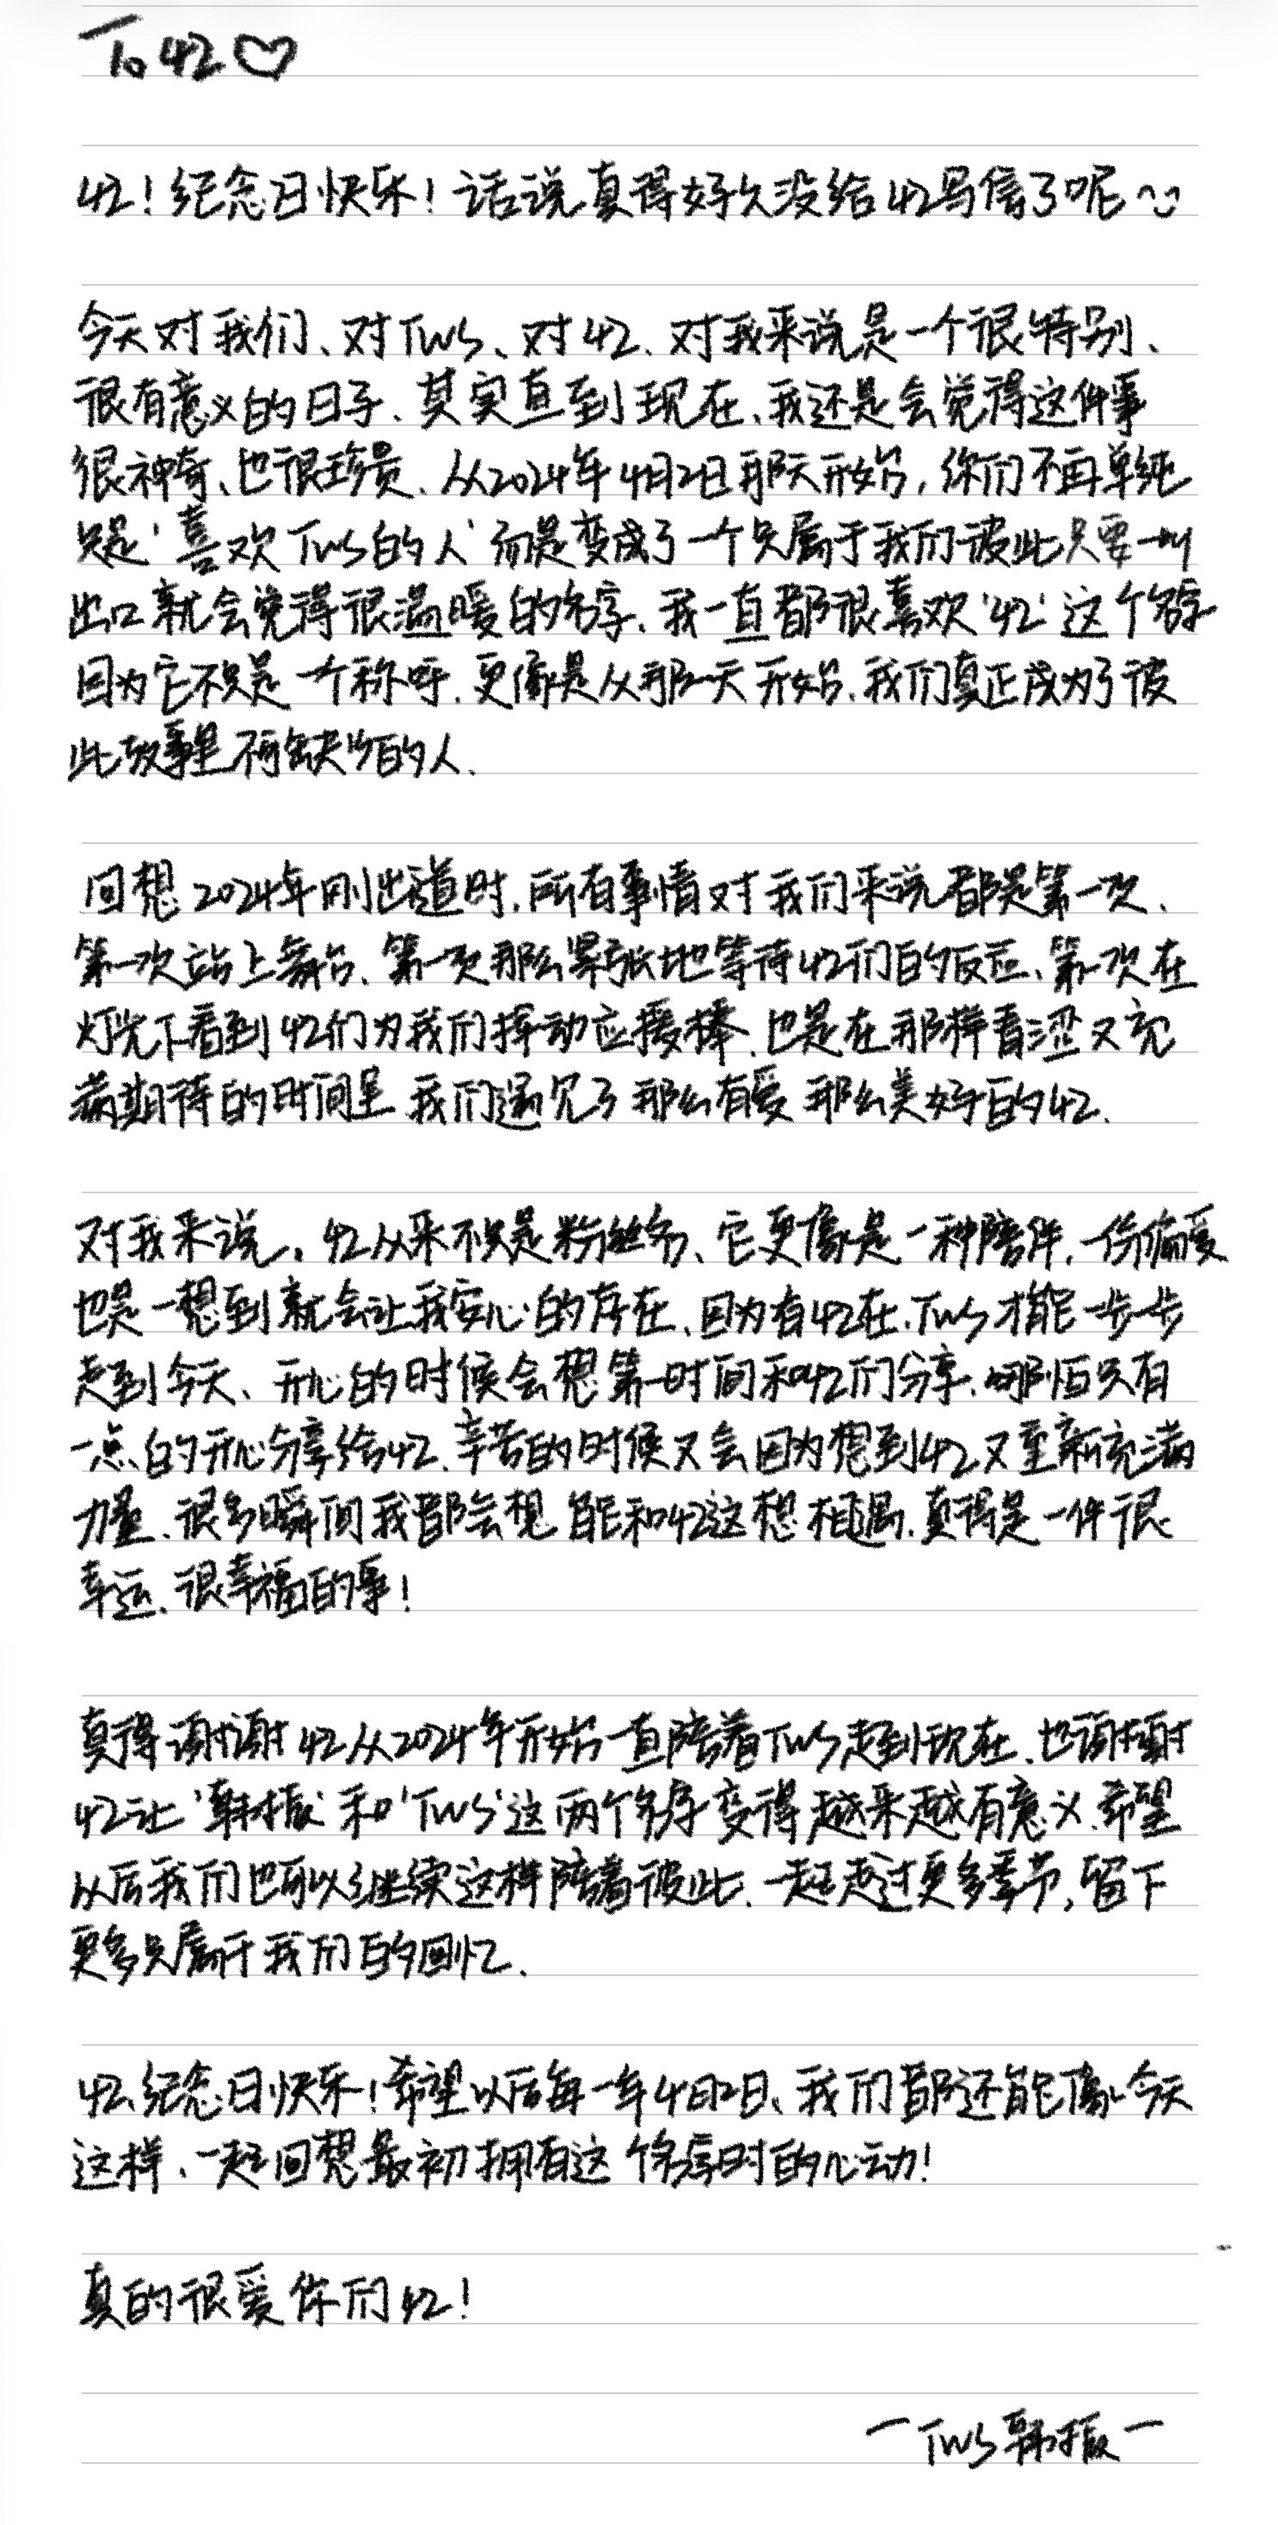 To 42♡
42！纪念日快乐！话说真得好久没给42写信了呢~
今天对我们、对TWS、对42、对我来说是一个很特别、
很有意义的日子、其实直到现在、我还是会觉得这件事
很神奇、也很珍贵、从2024年4月2日那天开始，你们不再单纯
只是'喜欢TWS的人'而是变成了一个只属于我们彼此只要一叫
出口就会觉得很温暖的名字、我一直都很喜欢'42'这个名字
因为它不只是一个称呼、更像是从那一天开始、我们真正成为了彼
此故事里不可缺少的人、
回想2024年刚出道时、所有事情对我们来说都是第一次、
第一次站上舞台、第一次那么紧张地等待42们的反应、第一次在
灯光下看到42们为我们挥动应援棒、也是在那样青涩又充
满期待的时间里 我们遇见了那么有爱 那么美好的42、
对我来说。42从来不只是粉丝名、它更像是一种陪伴、一份偏爱
也是一想到就会让我安心的存在、因为有42在、TWS才能一步一步
走到今天、开心的时候会想第一时间和42们分享、哪怕只有
一点的开心分享给42、辛苦的时候又会因为想到42又重新充满
力量、很多瞬间我都会想 能和42这想相遇、真得是一件很
幸运、很幸福的事！
真得谢谢42从2024年开始一直陪着TWS走到现在、也谢谢
42让'韩振'和'TWS'这两个名字变得越来越有意义、希望
以后我们也可以继续这样陪着彼此、一起走过更多季节，留下
更多只属于我们的回忆、
42、纪念日快乐！希望以后每一年4月2日、我们都还能像今天
这样、一起回想最初拥有这个名字时的心动！
真的很爱你们42！
－TWS韩振－